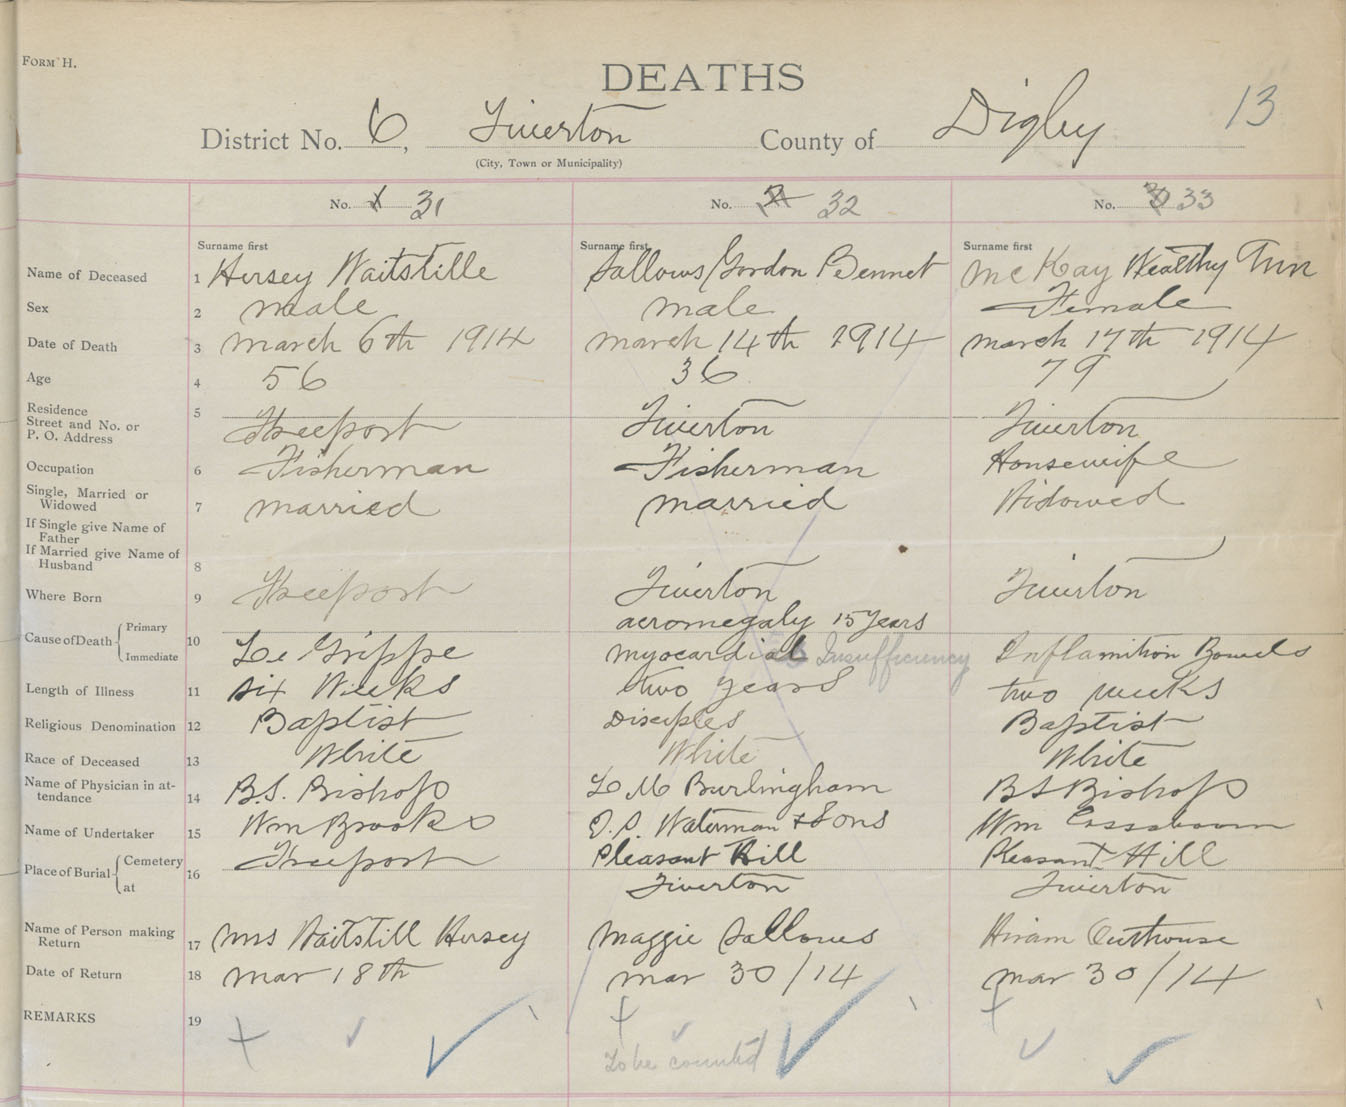 FORM H.
DEATHS
District No. 6, Tiverton County of Digby 13
(City, Town or Municipality)
No. 1 31 No. 2 32 No. 3 33
Surname first Surname first Surname first
Name of Deceased 1 Hersey Waitstille Sallows Gordon Bennet McKay Wealthy Ann
Sex 2 male male Female
Date of Death 3 march 6th 1914 march 14th 1914 march 17th 1914
Age 4 56 36 79
Residence
Street and No. or
P. O. Address 5 Freeport Tiverton Tiverton
Occupation 6 Fisherman Fisherman Housewife
Single, Married or
Widowed 7 married married Widowed
If Single give Name of
Father
If Married give Name of
Husband 8
Where Born 9 Freeport Tiverton Tiverton
Cause of Death Primary acromegaly 15 years
Immediate 10 Le Grippe myocardial Insufficiency Inflamition Bowels
Length of Illness 11 six Weeks two years two weeks
Religious Denomination 12 Baptist Disciples Baptist
Race of Deceased 13 White White White
Name of Physician in at-
tendance 14 B.S. Bishop L M Burlingham B S Bishop
Name of Undertaker 15 Wm Brooks Waterman & Sons Wm Cossaboom
Place of Burial Cemetery Freeport Pleasant Hill Pleasant Hill
at 16 Tiverton Tiverton
Name of Person making
Return 17 Mrs Waitstill Hersey Maggie Sallows Hiram Outhouse
Date of Return 18 mar 18th mar 30/14 mar 30/14
REMARKS 19
To be counted